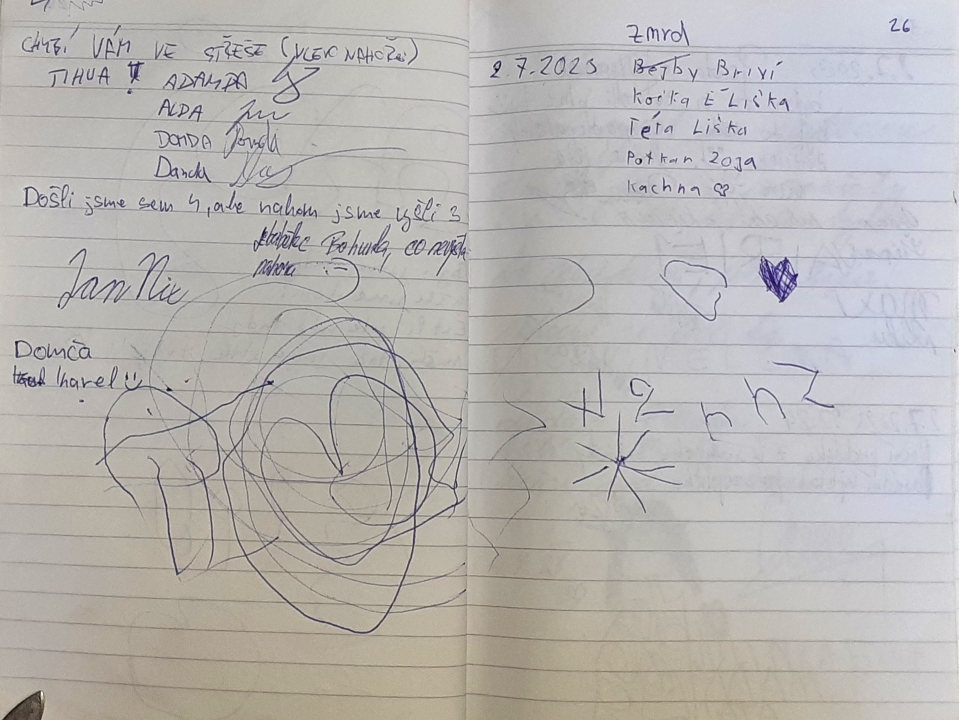 CHYBÍ VÁM VE STŘEŠE (VLEVO NAHOŘE)
ADAMDA
ALDA
DOMDA
Danda
Došli jsme sem 4, ale nahoru jsme vyšli 3
Bohunka, co nevyšla
nahoru :-)
Jan
Domča
Karel
26
Zmrd
2.7.2023 Bejby Briví
Kočka E Liška
Teta Liška
Potkan Zoja
Kachna